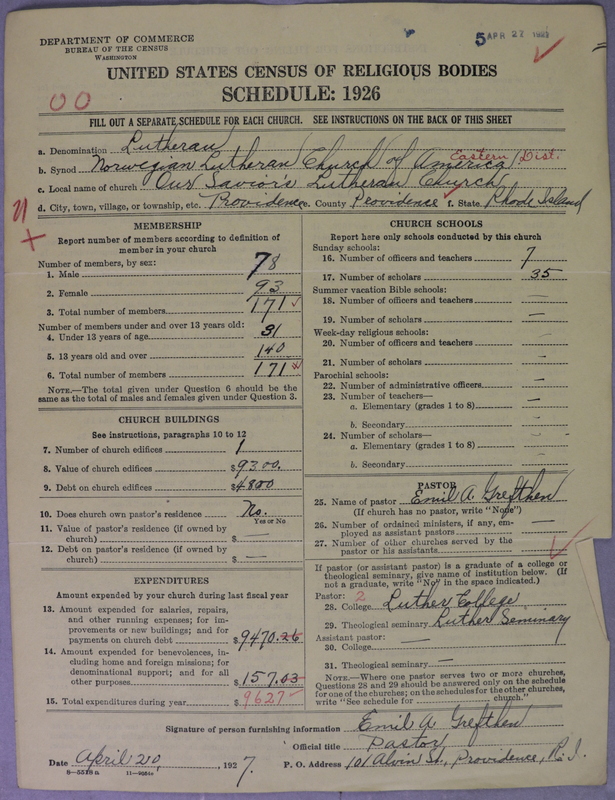 DEPARTMENT OF COMMERCE
BUREAU OF THE CENSUS
WASHINGTON
5 APR 27
UNITED STATES CENSUS OF RELIGIOUS BODIES
SCHEDULE: 1926
00
FILL OUT A SEPARATE SCHEDULE FOR EACH CHURCH. SEE INSTRUCTIONS ON THE BACK OF THIS SHEET
a. Denomination Lutheran
b. Synod Norwegian Lutheran Church of America / Eastern Dist.
c. Local name of church Our Savior's Lutheran Church
d. City, town, village, or township, etc. Providence e. County Providence f. State Rhode Island
MEMBERSHIP
Report number of members according to definition of member in your church
Number of members, by sex:
1. Male 78
2. Female 93
3. Total number of members 171
Number of members under and over 13 years old:
4. Under 13 years of age 31
5. 13 years old and over 140
6. Total number of members 171
NOTE.—The total given under Question 6 should be the same as the total of males and females given under Question 3.
CHURCH BUILDINGS
See instructions, paragraphs 10 to 12
7. Number of church edifices 1
8. Value of church edifices $9300.
9. Debt on church edifices $4800
10. Does church own pastor's residence No.
Yes or No
11. Value of pastor's residence (if owned by church) $ —
12. Debt on pastor's residence (if owned by church) $ —
EXPENDITURES
Amount expended by your church during last fiscal year
13. Amount expended for salaries, repairs, and other running expenses; for improvements or new buildings; and for payments on church debt $9470.26
14. Amount expended for benevolences, including home and foreign missions; for denominational support; and for all other purposes $157.03
15. Total expenditures during year $9627
CHURCH SCHOOLS
Report here only schools conducted by this church
Sunday schools:
16. Number of officers and teachers 7
17. Number of scholars 35
Summer vacation Bible schools:
18. Number of officers and teachers —
19. Number of scholars —
Week-day religious schools:
20. Number of officers and teachers —
21. Number of scholars —
Parochial schools:
22. Number of administrative officers —
23. Number of teachers—
a. Elementary (grades 1 to 8) —
b. Secondary —
24. Number of scholars—
a. Elementary (grades 1 to 8) —
b. Secondary —
PASTOR
25. Name of pastor Emil A. Grefthen
(If church has no pastor, write "None")
26. Number of ordained ministers, if any, employed as assistant pastors —
27. Number of other churches served by the pastor or his assistants —
If pastor (or assistant pastor) is a graduate of a college or theological seminary, give name of institution below. (If not a graduate, write "No" in the space indicated.)
Pastor: 2
28. College Luther College
29. Theological seminary Luther Seminary
Assistant pastor:
30. College —
31. Theological seminary —
NOTE.—Where one pastor serves two or more churches, Questions 28 and 29 should be answered only on the schedule for one of the churches; on the schedules for the other churches, write "See schedule for church."
Signature of person furnishing information Emil A Grefthen
Official title Pastor
Date April 20, 1927. P. O. Address 101 Alvin St., Providence, R.I.
8—5518a 11—9664